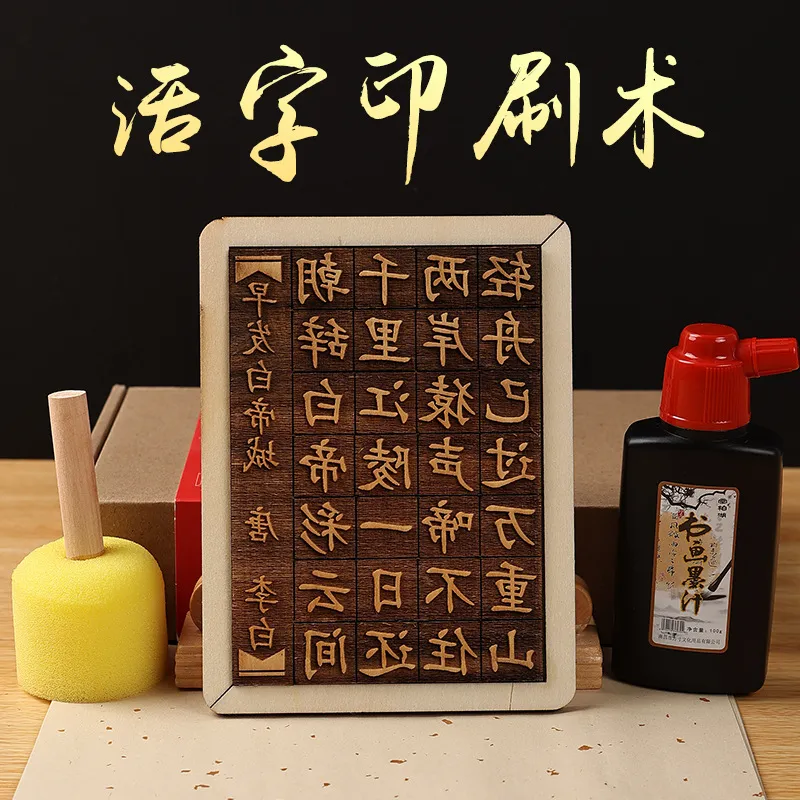 活字印刷术
早发白帝城 唐 李白
朝辞白帝彩云间
千里江陵一日还
两岸猿声啼不住
轻舟已过万重山
书画墨汁
净含量：100g